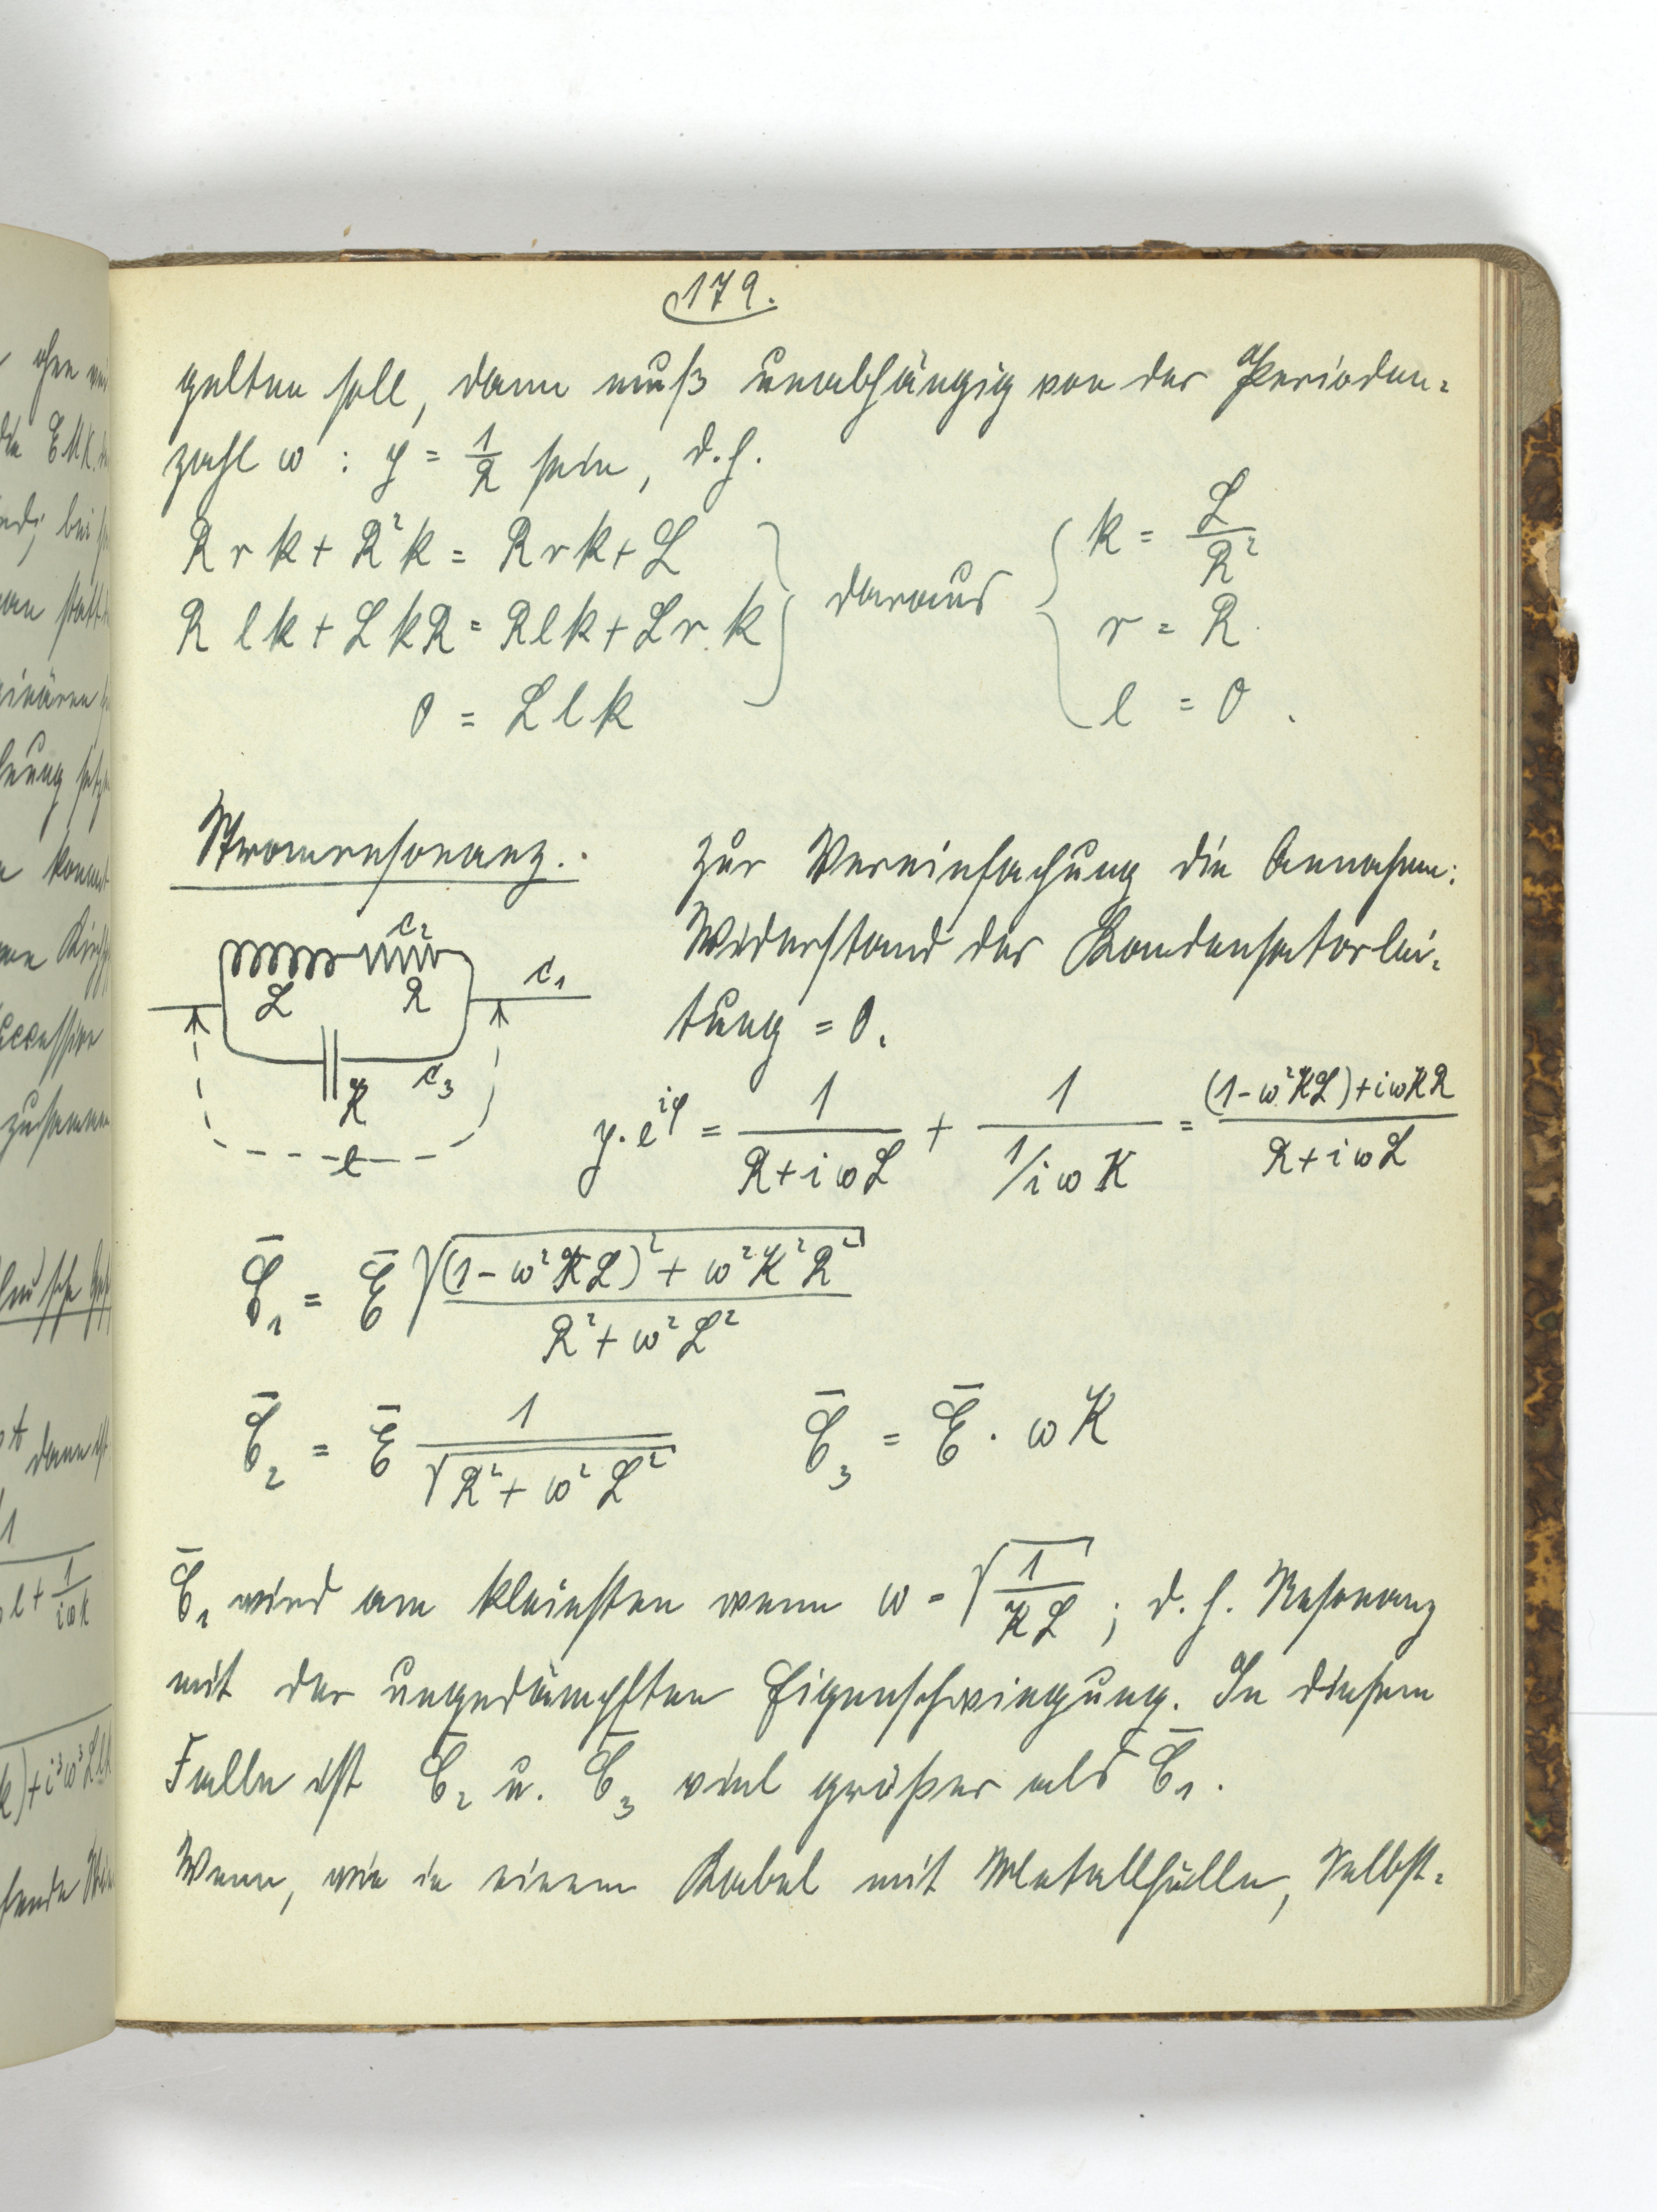 179.
gelten soll, dann muß unabhängig von der Perioden-
zahl ω : y = 1/R sein, d.h.
R r k + R² k = R r k + L
R l k + L k R = R l k + L r k
0 = L l k
daraus
k = L/R²
r = R
l = 0.
Stromresonanz.
Zur Vereinfachung die Annahme:
Widerstand der Kondensatorlei-
tung = 0.
c₂
L R
c₁
c₃
K
e
y·e^{iφ} = 1/(R+iωL) + 1/(1/iωK) = ((1-ω²KL)+iωKR)/(R+iωL)
C̄₁ = Ē √(((1-ω²KL)² + ω²K²R²)/(R²+ω²L²))
C̄₂ = Ē 1/√(R²+ω²L²) C̄₃ = Ē · ωK
C̄₁ wird am kleinsten wenn ω = √(1/KL) ; d.h. Resonanz
mit der ungedämpften Eigenschwingung. In diesem
Falle ist C̄₂ u. C̄₃ viel größer als C̄₁.
Wenn, wie in einem Kabel mit Metallhülle, Selbst-